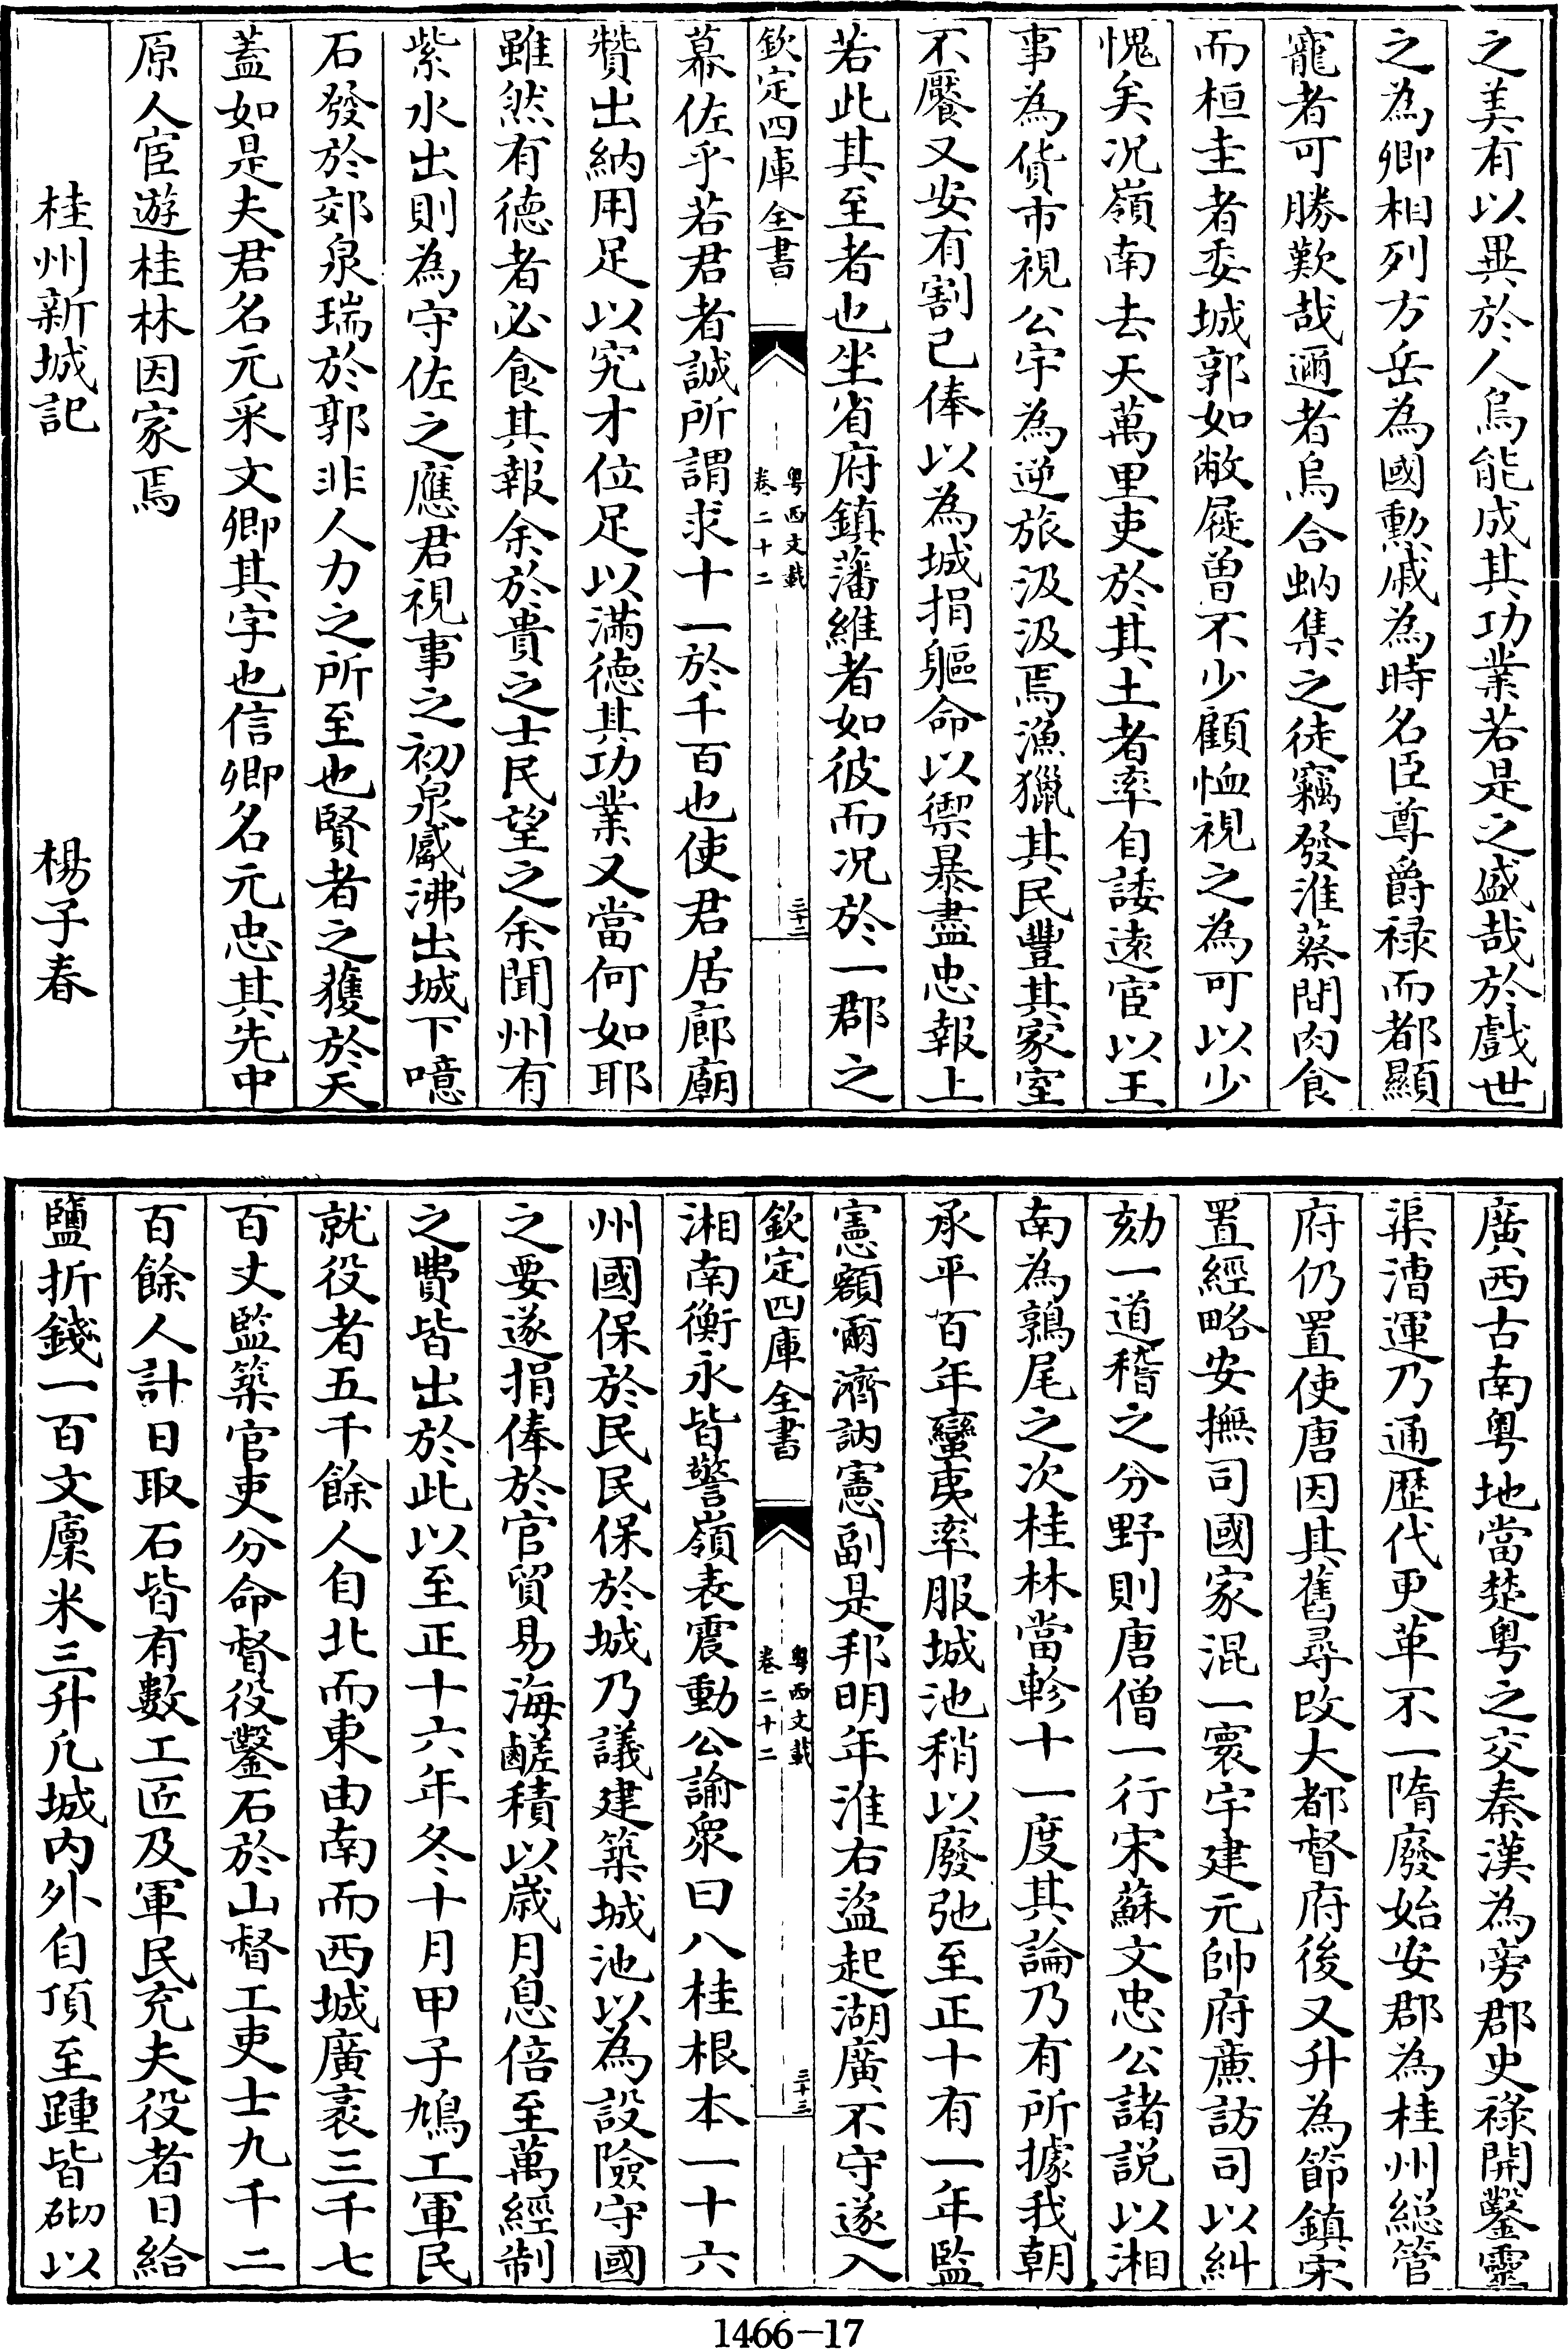 之美有以異於人烏能成其功業若是之盛哉於戲世
之為卿相列方岳為國勳戚為時名臣尊爵祿而都顯
寵者可勝歎哉邇者烏合蚋集之徒竊發淮蔡間肉食
而桓圭者委城郭如敝屣曽不少顧恤視之為可以少
愧矣况嶺南去天萬里吏於其土者率自諉逺宦以王
事為貨市視公宇為逆旅汲汲焉漁獵其民豐其家室
不饜又安有割已俸以為城捐軀命以禦暴盡忠報上
若此其至者也坐省府鎮藩維者如彼而况於一郡之
欽定四庫全書
粤西文載
卷二十二
三十二
幕佐乎若君者誠所謂求十一於千百也使君居廊廟
賛出納用足以究才位足以滿德其功業又當何如耶
雖然有德者必食其報余於貴之士民望之余聞州有
紫水出則為守佐之應君視事之初泉㵎沸出城下噫
石發於郊泉瑞於郭非人力之所至也賢者之獲於天
蓋如是夫君名元采文卿其字也信卿名元忠其先中
原人宦遊桂林因家焉
桂州新城記 楊子春
廣西古南粤地當楚粤之交秦漢為旁郡史祿開鑿靈
渠漕運乃通歴代更革不一隋廢始安郡為桂州総管
府仍置使唐因其舊尋改大都督府後又升為節鎮宋
置經略安撫司國家混一寰宇建元帥府亷訪司以糾
劾一道稽之分野則唐僧一行宋蘇文忠公諸説以湘
南為鶉尾之次桂林當軫十一度其論乃有所據我朝
承平百年蠻夷率服城池稍以廢弛至正十有一年監
憲額爾濟訥憲副是邦明年淮右盜起湖廣不守遂入
欽定四庫全書
粤西文載
卷二十二
三十三
湘南衡永皆警嶺表震動公諭衆曰八桂根本一十六
州國保於民民保於城乃議建築城池以為設險守國
之要遂捐俸於官貿易海鹺積以嵗月息倍至萬經制
之費皆出於此以至正十六年冬十月甲子鳩工軍民
就役者五千餘人自北而東由南而西城廣袤三千七
百丈監築官吏分命督役鑿石於山督工吏士九千二
百餘人計日取石皆有數工匠及軍民充夫役者日給
鹽折錢一百文廩米三升凡城内外自頂至踵皆砌以
1466-17